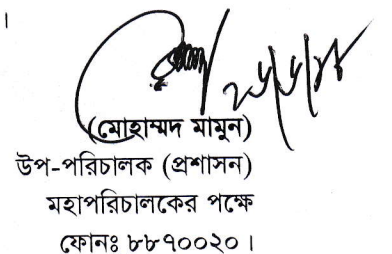 ।
(মোহাম্মদ মামুন)
উপ-পরিচালক (প্রশাসন)
মহাপরিচালকের পক্ষে
ফোনঃ ৮৮৭০০২০।